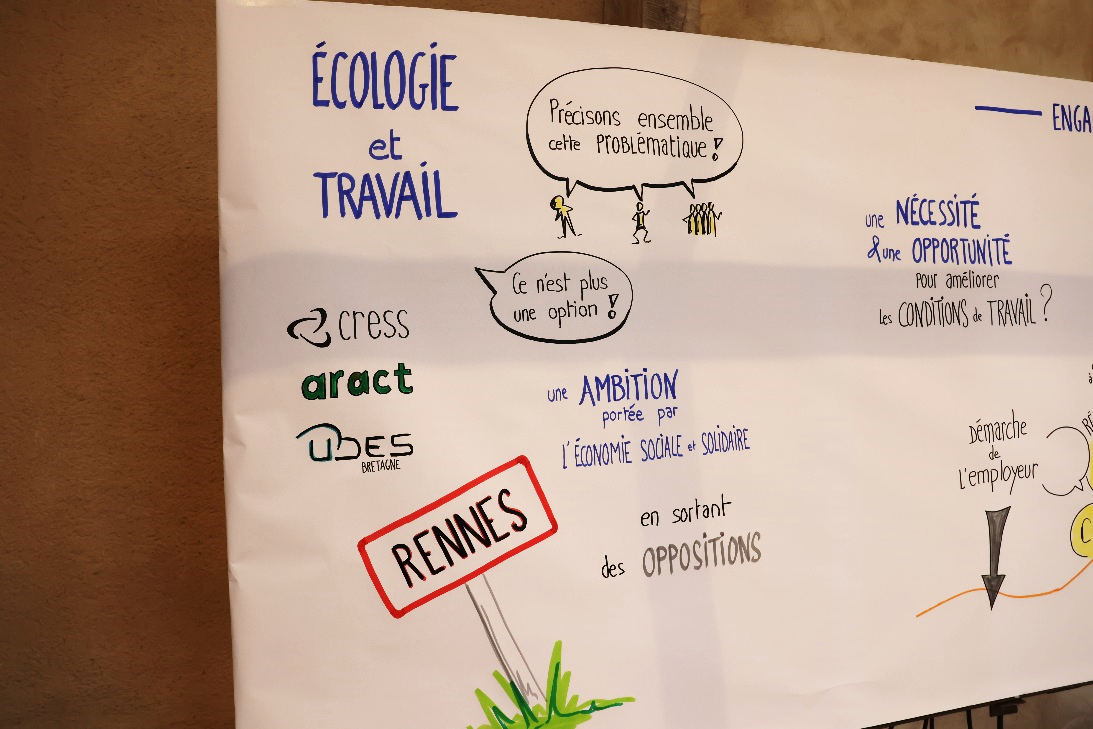 ÉCOLOGIE
et
TRAVAIL
Précisons ensemble
cette PROBLÉMATIQUE !
Ce n'est plus
une option !
cress
aract
UDES
BRETAGNE
une AMBITION
portée par
L'ÉCONOMIE SOCIALE et SOLIDAIRE
en sortant
des OPPOSITIONS
RENNES
ENGA
une NÉCESSITÉ
& une OPPORTUNITÉ
pour améliorer
les CONDITIONS de TRAVAIL ?
Démarche
de
L'employeur
RÉ
C